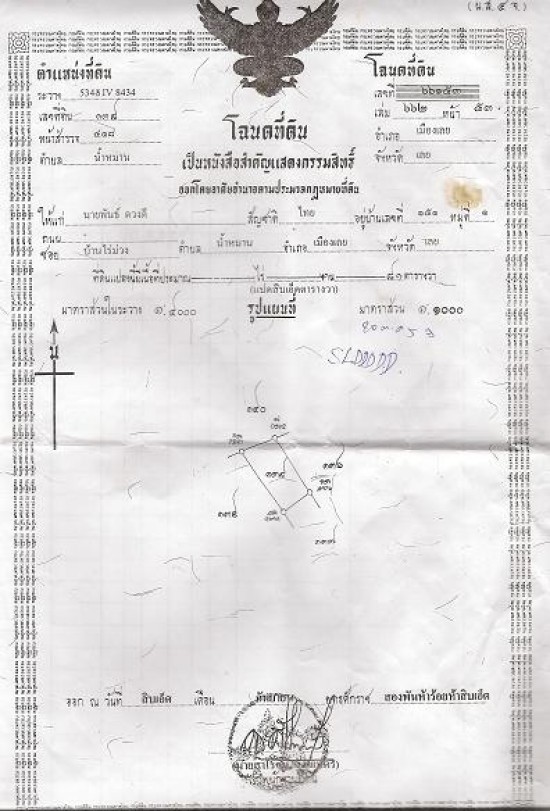 (น.ส. ๔ จ.)
ตำแหน่งที่ดิน
ระวาง 5348 IV 8434
เลขที่ดิน ๑๓๙
หน้าสำรวจ ๔๑๘
ตำบล น้ำหมาน
โฉนดที่ดิน
เลขที่ ๖๖๑๕๓
เล่ม ๖๖๒ หน้า ๕๓
อำเภอ เมืองเลย
จังหวัด เลย
โฉนดที่ดิน
เป็นหนังสือสำคัญแสดงกรรมสิทธิ์
ออกโดยอาศัยอำนาจตามประมวลกฎหมายที่ดิน
ให้แก่ นายพันธ์ ดวงดี สัญชาติ ไทย อยู่บ้านเลขที่ ๑๕๑ หมู่ที่ ๑
ถนน
ซอย บ้านไร่ม่วง ตำบล น้ำหมาน อำเภอ เมืองเลย จังหวัด เลย
ที่ดินแปลงนี้มีเนื้อที่ประมาณ ไร่ งาน ๘๑ ตารางวา
(แปดสิบเอ็ดตารางวา)
มาตราส่วนในระวาง ๑:๔๐๐๐ รูปแผนที่ มาตราส่วน ๑:๑๐๐๐
น
๑๔๐
๑๓๙
ออก ณ วันที่ สิบเอ็ด เดือน พุทธศักราช สองพันห้าร้อยห้าสิบเอ็ด